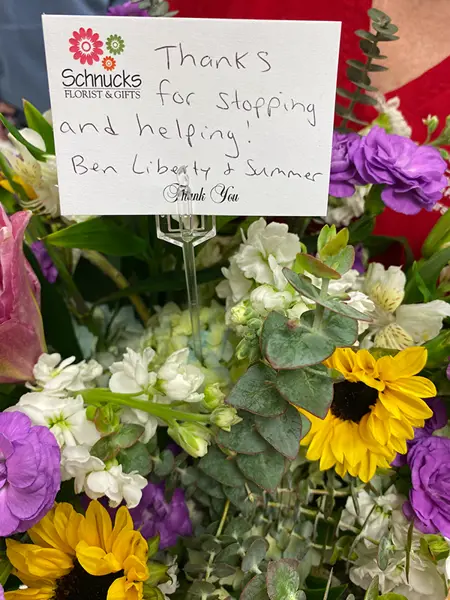 Thanks
Schnucks
FLORIST & GIFTS
for stopping
and helping!
Ben Liberty & Summer
Thank You